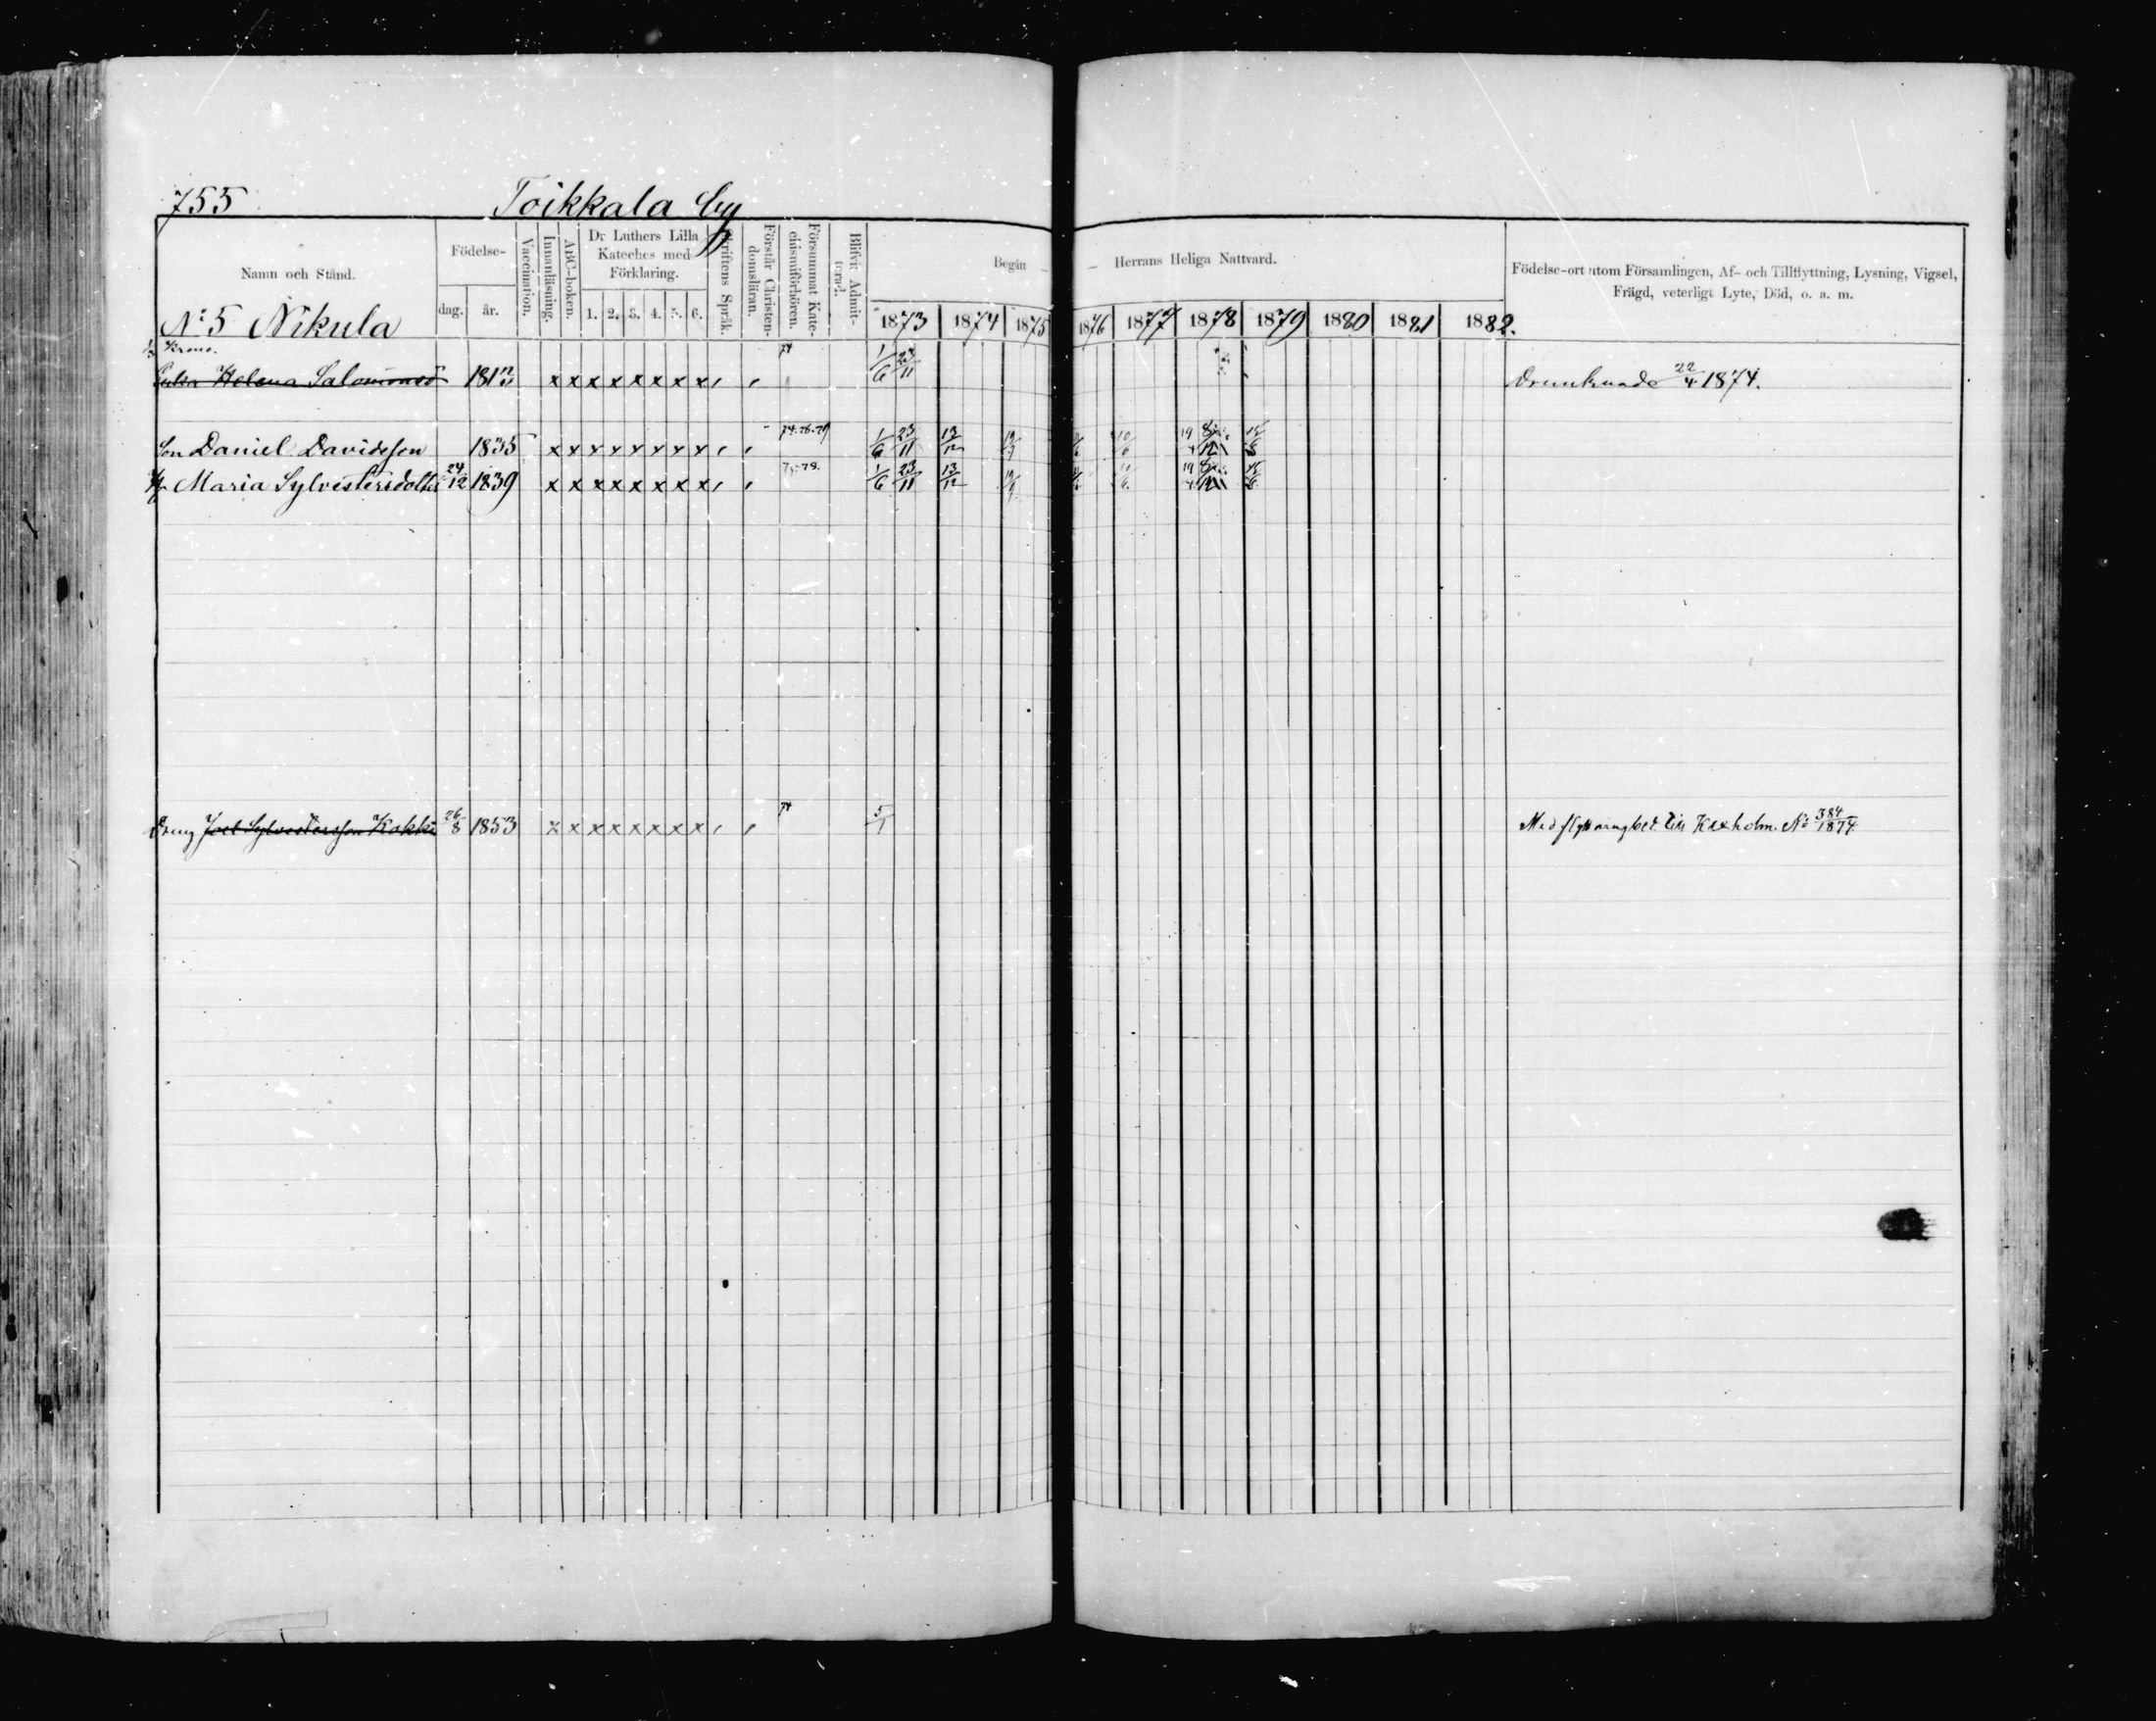 755 Toikkala by
Namn och Stånd.
Födelse-
dag. år.
Vaccination.
Innanläsning.
ABC-boken.
Dr Luthers Lilla
Kateches med
Förklaring.
1. 2. 3. 4. 5. 6.
Skriftens Språk.
Förstår Christen-
domsläran.
Försummat Kate-
chismiförhören.
Blifvit Admit-
terad.
Begått — — Herrans Heliga Nattvard.
1873 1874 1875 1876 1877 1878 1879 1880 1881 1882.
Födelse-ort utom Församlingen, Af- och Tillflyttning, Lysning, Vigsel,
Frägd, veterligt Lyte, Död, o. a. m.
No 5 Nikula
Krono.
Enka Helena Salomonsd x x x x x x x x 74 1/6 23/11 Drunknade 22/4 1874.
Son Daniel Davidsson 1835 x x x x x x x x 74.76.79 1/6 23/11 13/12
Maria Sylvestersdotter 24/12 1839 x x x x x x x x 1/6 23/11 13/12
Dreng Joel Sylvestersson Kokki 26/8 1853 x x x x x x x x 74 5/1 Med flyttningbet. till Kexholm. No 384/1874